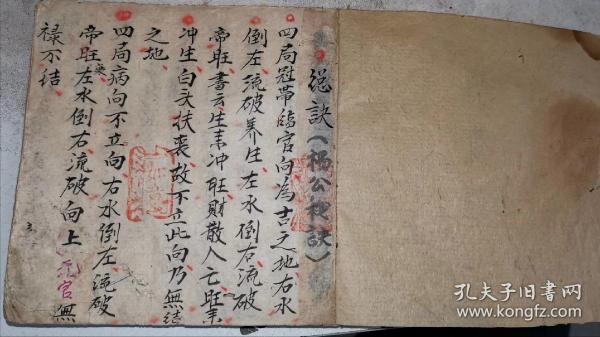 总訣（楊公秘訣）
四局冠帶臨官向為吉之地右水
倒左流破养生左水倒右流破
帝旺書云生来冲旺財散人亡旺来
冲生白头扶喪故不立此向乃無結
之地
四局病向不立向右水倒左流破
帝旺左水倒右流破向上
官無
禄不结
孔夫子旧書网